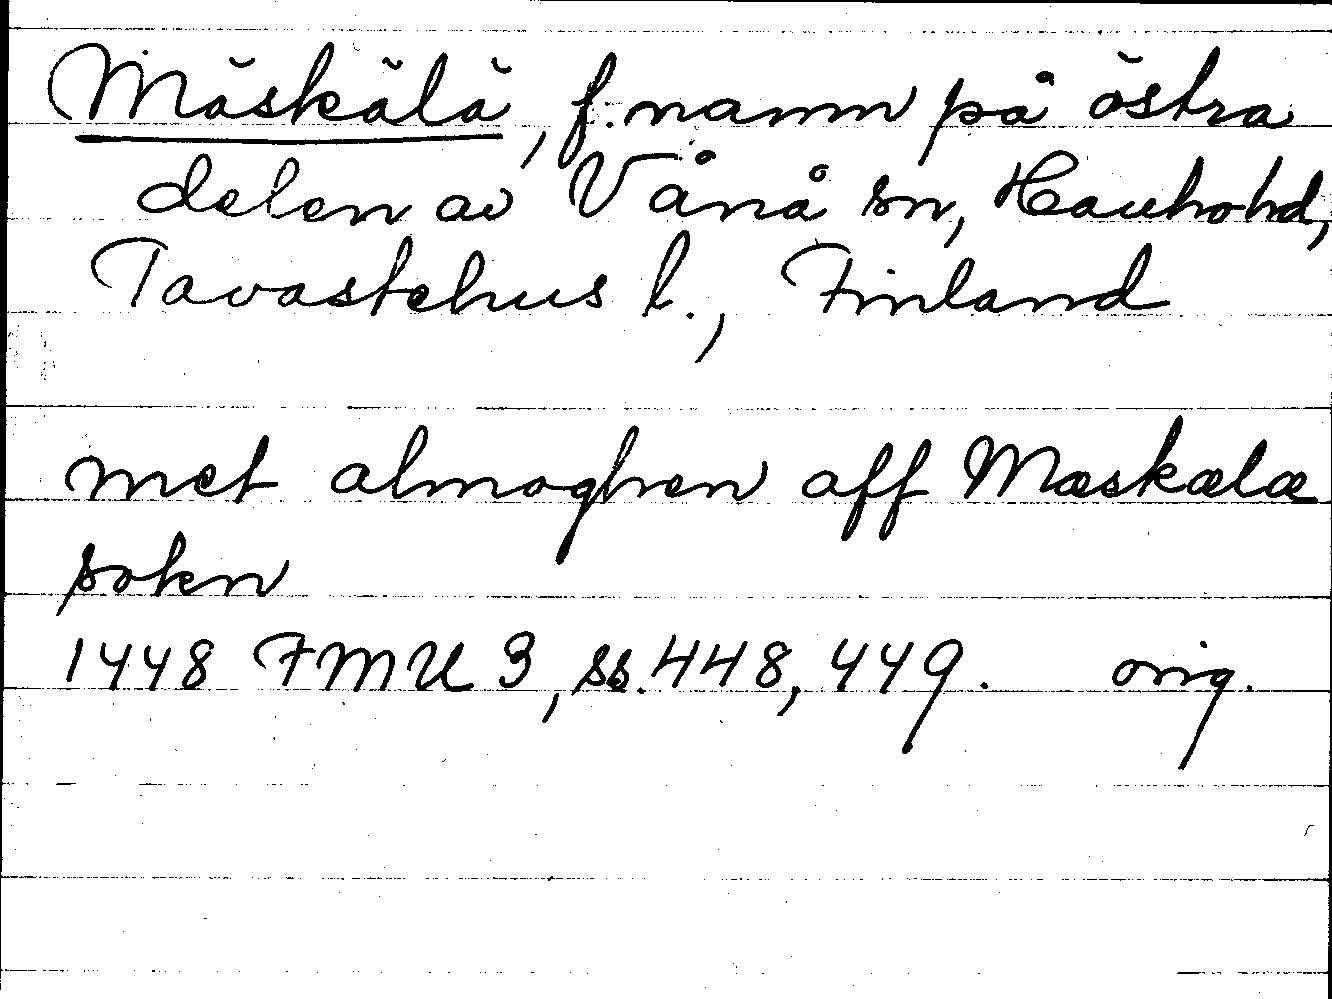 Mäskälä, f. namn på östra
delen av Vånå sn, Hauho hd,
Tavastehus l., Finland
met almoghen aff Mæskælæ
sokn
1448 FMU 3, ss. 448, 449. orig.